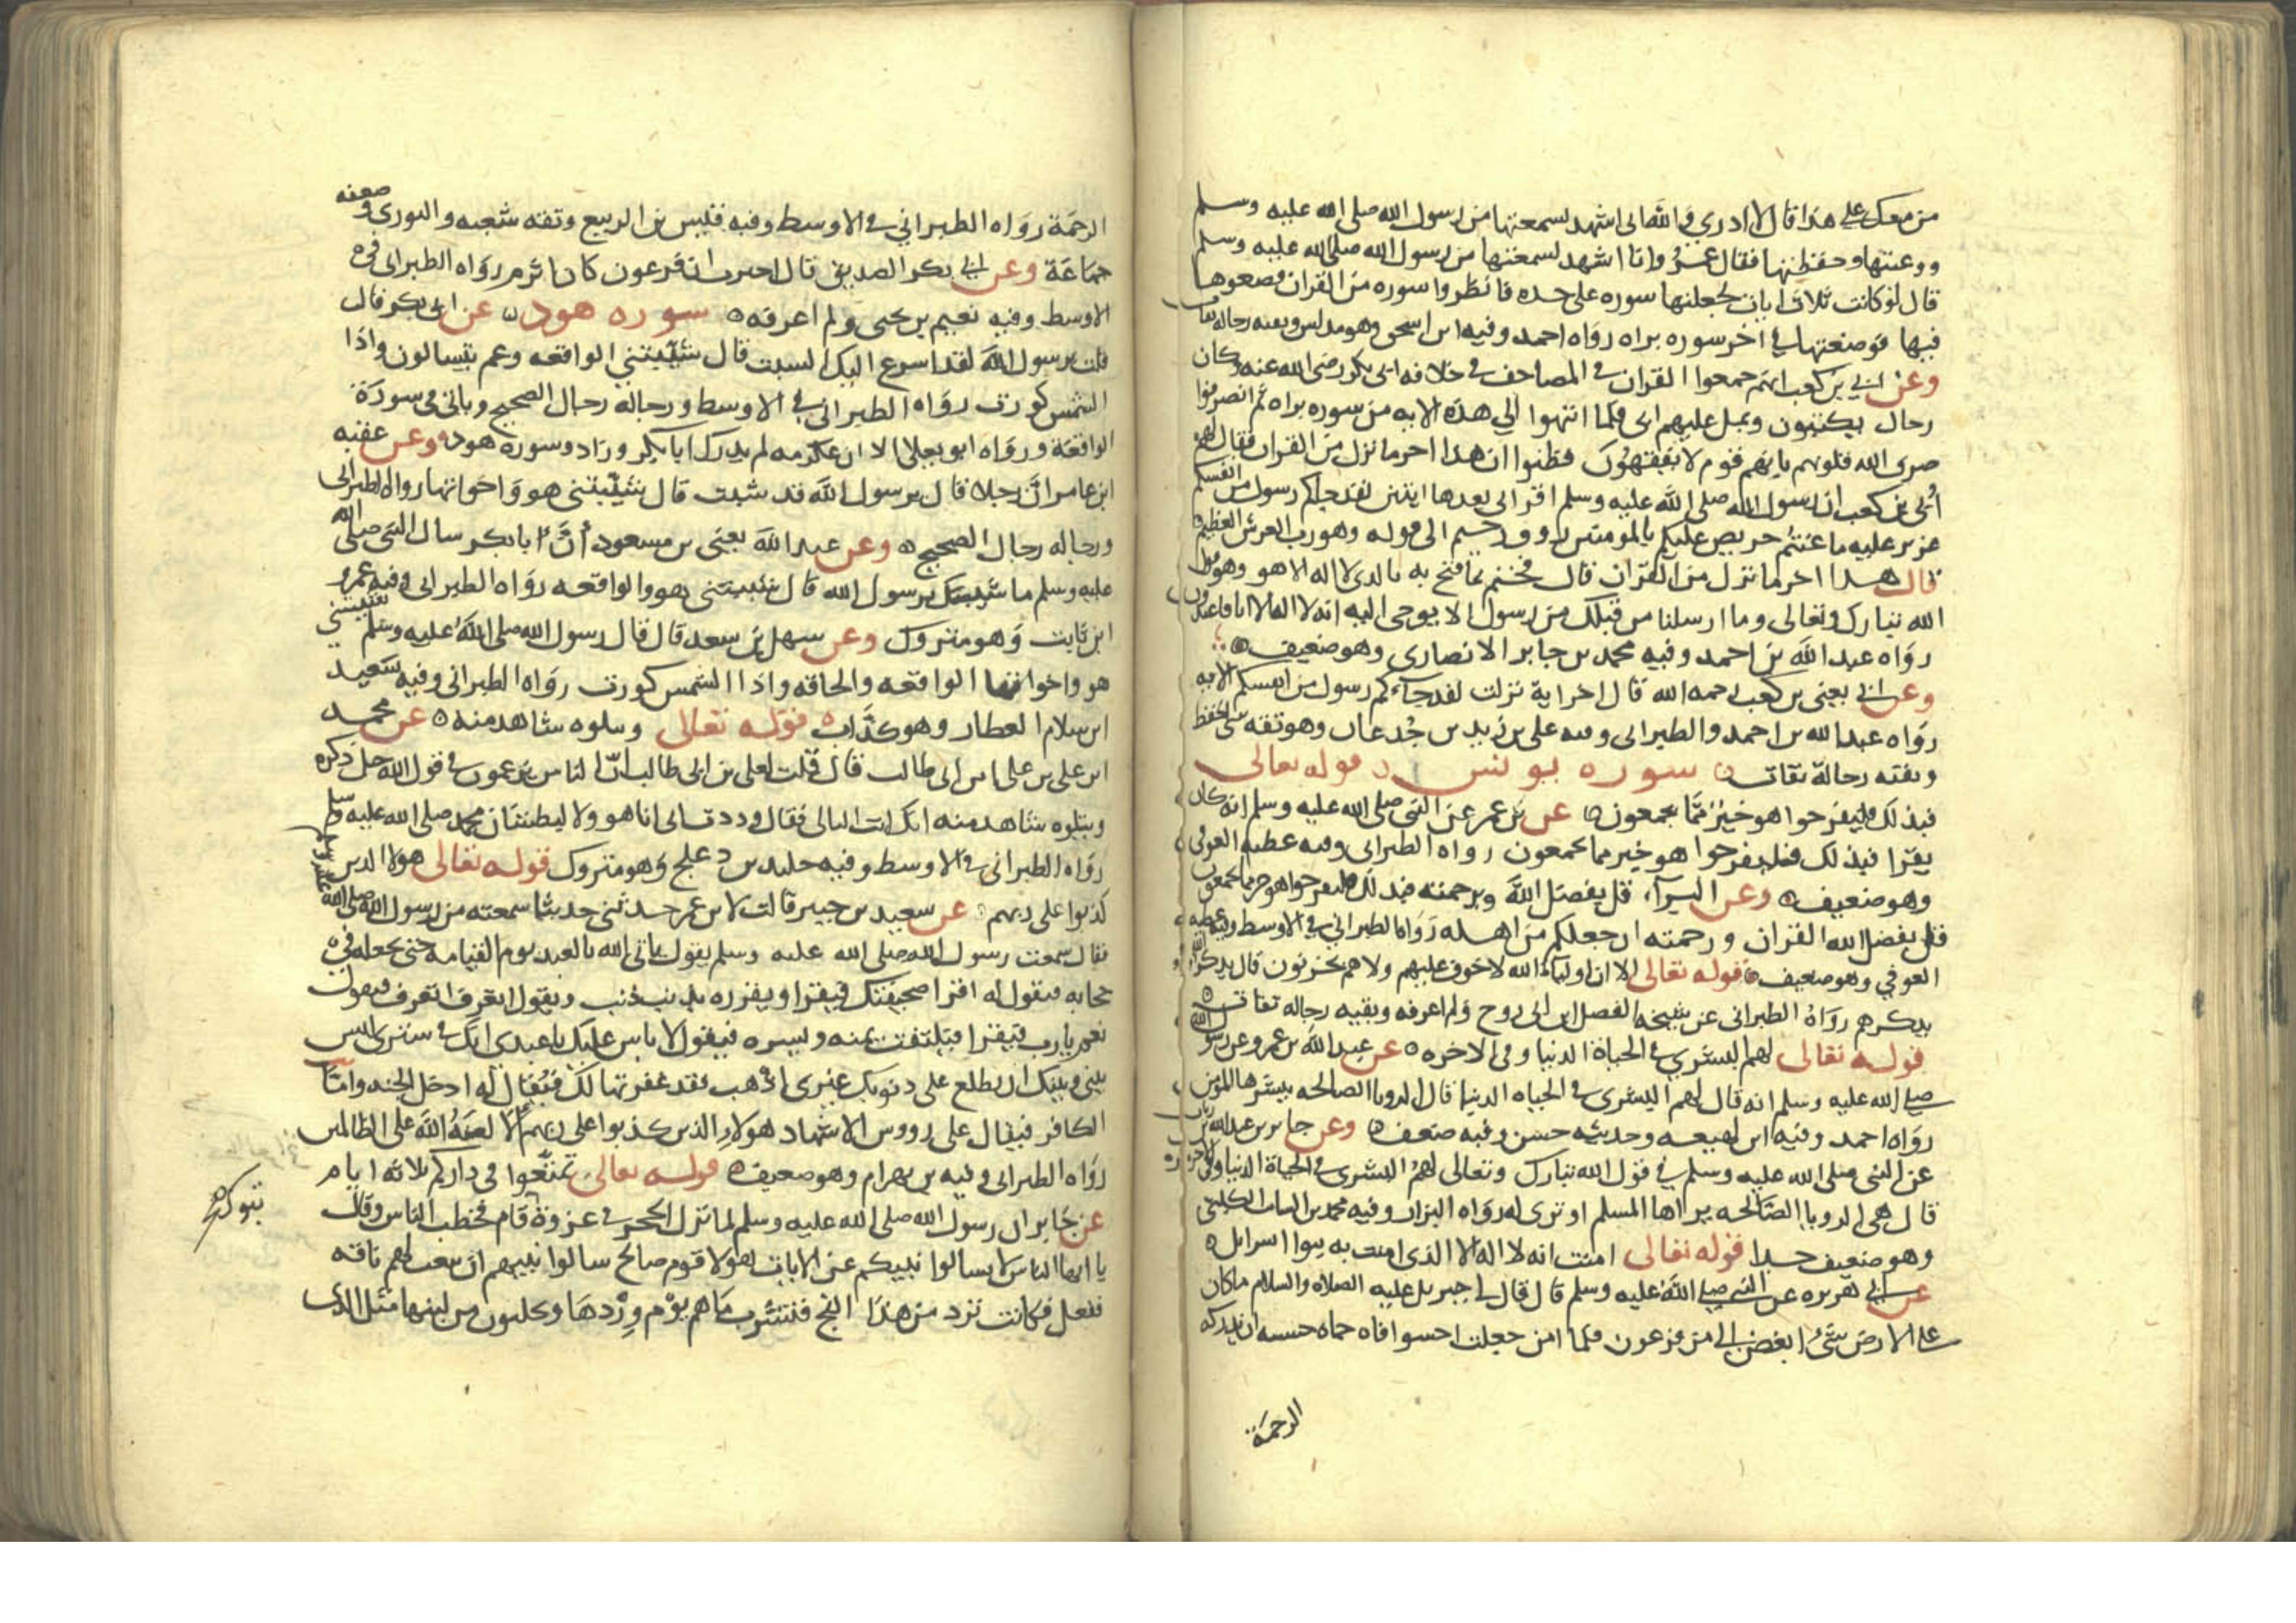 من معك على هذا قال لا ادري والله اني اشهد لسمعتها من رسول الله صلى الله عليه وسلم
ووعيتها وحفظتها فقال عمر وانا اشهد لسمعتها من رسول الله صلى الله عليه وسلم
قال لو كانت ثلاث ايات لجعلتها سوره على حده فانظروا سوره من القران فضعوها
فيها فوضعتها في اخر سوره براه رواه احمد وفيه ابن اسحق وهو مدلس وبقيه رجاله ثقات
وعن ابي بن كعب انهم جمعوا القران في المصاحف في خلافه ابي بكر رضى الله عنه وكان
رجال يكتبون ويمل عليهم ابى فلما انتهوا الي هذه الايه من سوره براه ثم انصرفوا
صرف الله قلوبهم بانهم قوم لا يفقهون فظنوا ان هذا اخر ما نزل من القران فقال لهم
أبي بن كعب ان رسول الله صلى الله عليه وسلم اقراني بعدها ايتين لقد جاكم رسول من انفسكم
عزيز عليه ما عنتم حريص عليكم بالمومنين روف رحيم الى قوله وهو رب العرش العظيم
قال هذا اخر ما نزل من القران قال فختم بما فتح به بالذى لا اله الا هو وهو قول
الله تبارك وتعالى وما ارسلنا من قبلك من رسول الا يوحى اليه انه لا اله الا انا فاعبدون
رواه عبد الله بن احمد وفيه محمد بن جابر الانصارى وهو ضعيف
وعن ابي يعني بن كعب رحمه الله قال اخر اية نزلت لقد جاءكم رسول من انفسكم الايه
رواه عبد الله بن احمد والطبرانى وفيه على بن زيد بن جدعان وهو ثقه سئ الحفظ
وبقيه رجالة ثقات سوره يونس قوله تعالى
فبذلك فليفرحوا هو خير مما يجمعون عن بن عمر عن النبى صلى الله عليه وسلم انه كان
يقرا فبذلك فليفرحوا هو خير مما يجمعون رواه الطبرانى وفيه عطيه العوفى
وهو ضعيف وعن البرآء قل بفضل الله وبرحمته فبذلك فليفرحوا هو خير مما يجمعون
قال بفضل الله القران ورحمته ان جعلكم من اهله رواه الطبراني في الاوسط وفيه عطيه
العوفي وهو ضعيف قوله تعالى الا ان اولياء الله لا خوف عليهم ولا هم يحزنون قال يذكر الله
بذكرهم رواه الطبرانى عن شيخه الفضل ابن ابى روح ولم اعرفه وبقيه رجاله ثقات
قوله تعالى لهم البشري في الحياة الدنيا وفى الاخره عن عبد الله بن عمرو عن رسول الله
صلى الله عليه وسلم انه قال لهم البشرى في الحياه الدنيا قال الرويا الصالحه يبشرها المومن
رواه احمد وفيه ابن لهيعه وحديثه حسن وفيه ضعف وعن جابر بن عبد الله بن رياب
عن النبى صلى الله عليه وسلم في قول الله تبارك وتعالى لهم البشرى في الحياة الدنيا وفي الاخره
قال هى الرويا الصالحه يراها المسلم او ترى له رواه البزار وفيه محمد بن السائب الكلبي
وهو ضعيف جدا قوله تعالى امنت انه لا اله الا الذى امنت به بنوا اسرايل
عن ابي هريره عن النبى صلى الله عليه وسلم قال قال لي جبريل عليه الصلاه والسلام ما كان
على الارض شئ ابغض الي من فرعون فلما امن جعلت احسوا فاه حماه خشيه ان تدركه
الرحمة
الرحمة رواه الطبراني في الاوسط وفيه قيس بن الربيع وثقه شعبه والثورى وضعفه
جماعة وعن ابي بكر الصديق قال اخبرت ان فرعون كان اثرم رواه الطبرانى في
الاوسط وفيه نعيم بن يحيى ولم اعرفه سوره هود عن ابى بكر قال
قلت يرسول الله لقد اسرع اليك الشيب قال شيبتني الواقعه وعم يتسالون واذا
الشمس كورت رواه الطبرانى في الاوسط ورجاله رجال الصحيح وياتى فى سورة
الواقعة ورواه ابو يعلى الا ان عكرمه لم يدرك ابا بكر وزاد وسوره هود وعن عقبه
ابن عامر ان رجلا قال يرسول الله قد شبت قال شيبتنى هود واخواتها رواه الطبرانى
ورجاله رجال الصحيح وعن عبد الله يعني بن مسعود أن ابا بكر سال النبى صلى الله
عليه وسلم ما شيبك يرسول الله قال شيبتنى هود والواقعه رواه الطبرانى وفيه عمرو
ابن ثابت وهو متروك وعن سهل بن سعد قال قال رسول الله صلى الله عليه وسلم شيبتني
هود واخواتها الواقعه والحاقه واذا الشمس كورت رواه الطبرانى وفيه سعيد
ابن سلام العطار وهو كذاب قوله تعالى ويتلوه شاهد منه عن محمد
ابن على بن على ابن ابى طالب قال قلت لعلى بن ابى طالب ان الناس يزعمون في قول الله جل ذكره
ويتلوه شاهد منه انك انت التالى فقال وددت انى انا هو ولاكنه لسان محمد صلى الله عليه وسلم
رواه الطبرانى في الاوسط وفيه خليد بن دعلج وهو متروك قوله تعالى هولا الذين
كذبوا على ربهم عن سعيد بن جبير قال قلت لابن عمر حدثنى حديثا سمعته من رسول الله صلى الله عليه وسلم
فقال سمعت رسول الله صلى الله عليه وسلم يقول ياتى الله بالعبد يوم القيامه حتى يجعله في
حجابه فيقول له اقرا صحيفتك فيقرا ويقرره بذنب ذنب ويقول اتعرف اتعرف فيقول
نعم يا رب فيقرا فيلتفت يمنه ويسره فيقول لا باس عليك يا عبدى انك في سترى ليس
بيني وبينك احد يطلع على ذنوبك غيرى اذهب فقد غفرتها لك فيقال له ادخل الجنه واما
الكافر فيقال على رووس الاشهاد هولاء الذين كذبوا على ربهم الا لعنة الله على الظالمين
رواه الطبرانى وفيه بن بهرام وهو ضعيف قوله تعالى تمتعوا فى داركم ثلاثه ايام
عن جابر ان رسول الله صلى الله عليه وسلم لما نزل الحجر في غزوة قام فخطب الناس وقال
تبوك
يا ايها الناس لا تسالوا نبيكم عن الايات هولا قوم صالح سالوا نبيهم ان يبعث لهم ناقه
ففعل فكانت ترد من هذا الفج فتشرب ماهم يوم وردها ويحلبون من لبنها مثل الذى